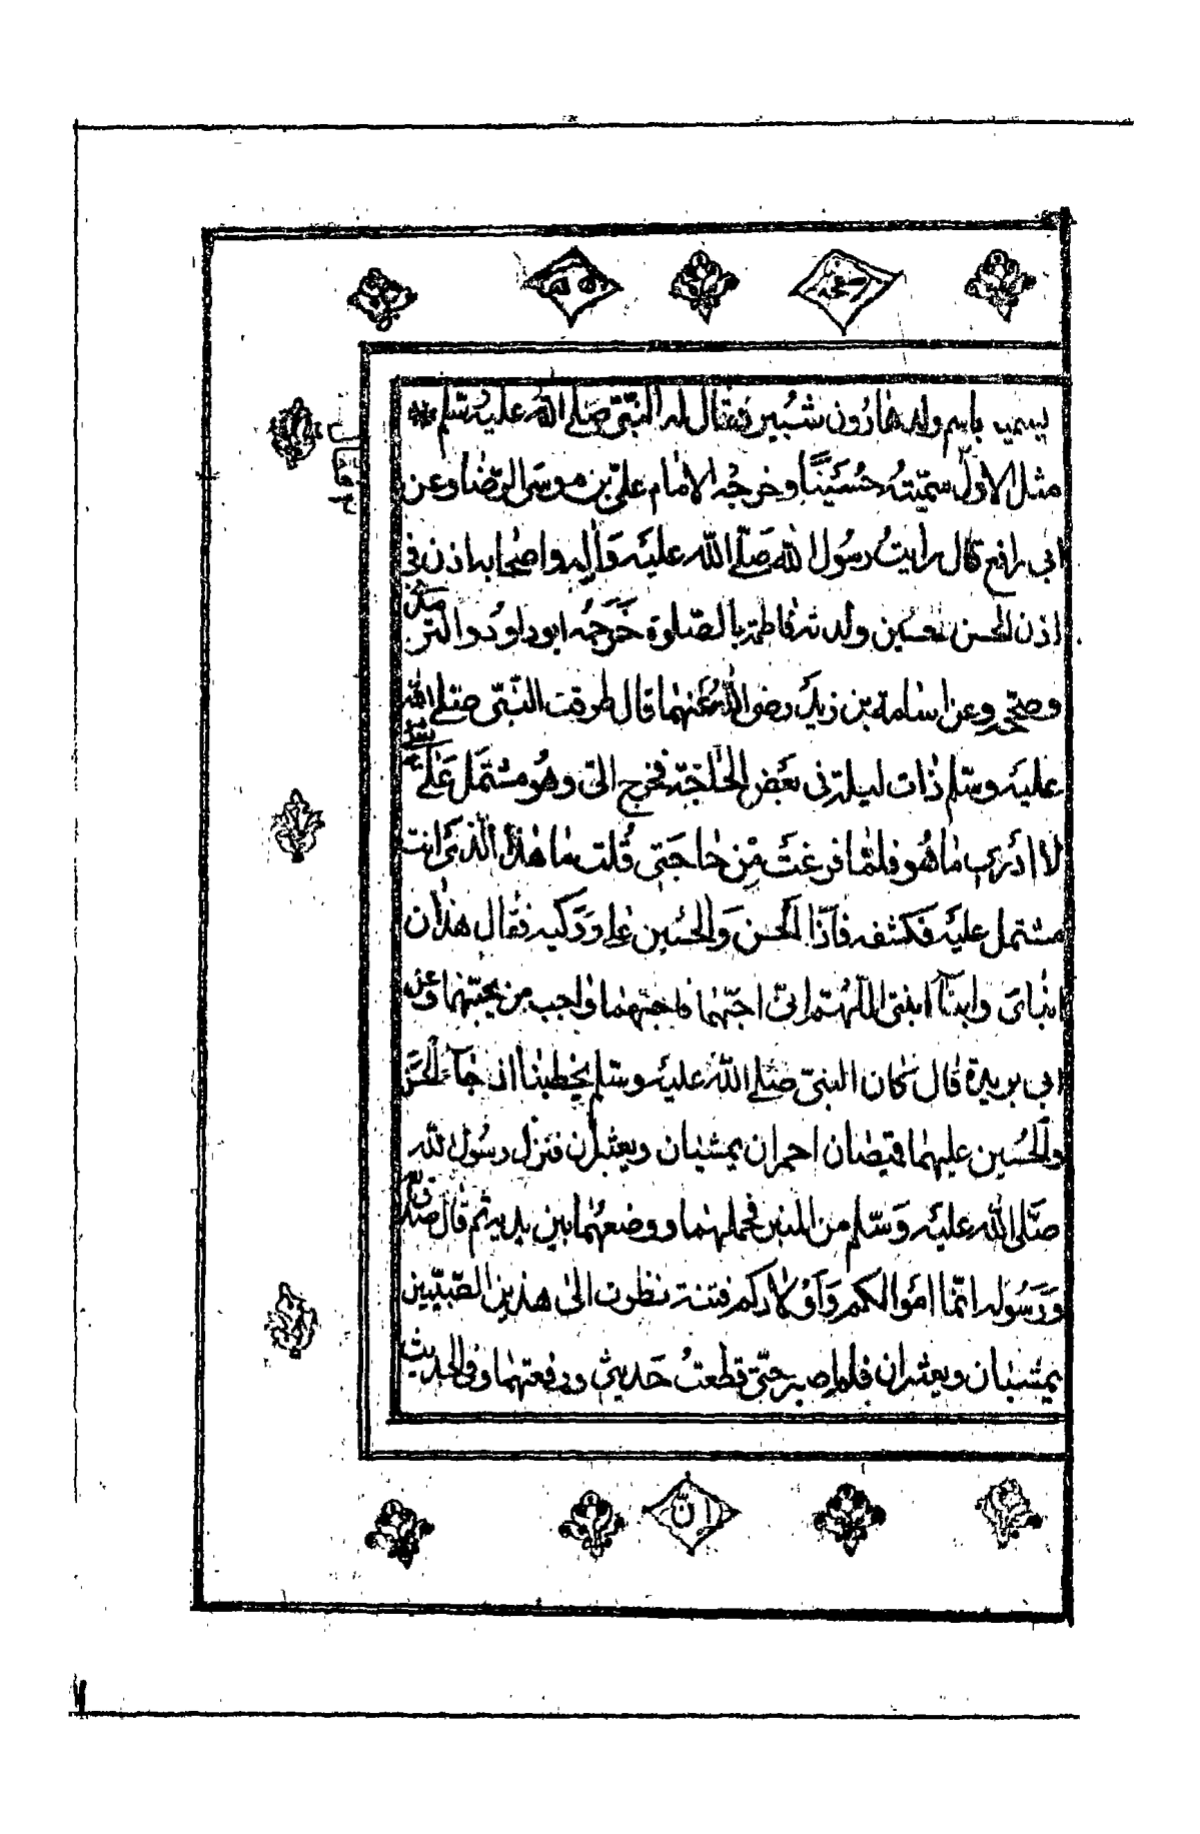 يسمي باسم ولد هارون شبير فقال له النبّي صَلى الله عليه وسّلم
مثل الاوّل سمّيتهُ حُسَينًا وخرجه الامام علىّ بن موسَى الرّضا وعن
ابى رافع قال رايتُ رسُول الله صَلّى اللّه عليَه وَاٰله واصحابه اذن فى
اذن الحسن الحسين ولدته فاطمة بالصّلوة خَرّجَهُ ابو داوُد والترمذى
وصحّحه وعن اسامة بن زيد رضى اللّهُ عَنهما قال طرقت النّبّى صَلى الله
عليَه وسّلم ذات ليلة فى بعَض الحاجة فخرج الىّ وهُو مشتمَل عَلٰى شئ
لا ادَرى ماهُو فلمّا فرغتُ مِن حاجَتى قُلت ما هٰذا الّذى انت
مشتمل عليَه فكشفه فاذا الَحسن وَالحُسين على وركيه فقال هذان
ابناىَ وابنآ ابنتى اللّهُمّ انىّ احبّهما فاحبّهما واحب من يحبّهما وعن
ابى بريدة قال كان النبىّ صَلى اللّهُ عليه وسّلم يخطبنا اذ جآء الَحسَن
والَحُسين عليهما قميصان احمران يمشيان ويعثران فنزل رسُول الله
صَلّى اللّه عليَه وَسّلم من المنبر فحملهما ووضعهُما بين يديه ثم قال صدَق اللّه
وَرَسُوله انمّا امَوالكم وَاَوْلادكم فتنة نظرت الىٰ هذين الصّبيّين
يمشيان ويعثران فلم اصبر حتّى قطعتُ حَديثى ورفعتهما وفى الحديث
انّ